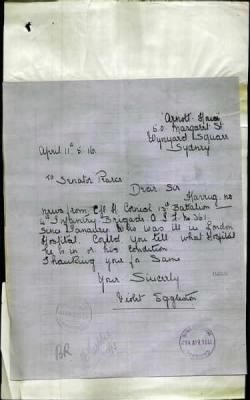 Arnott House
50 Margaret St
Wynyard Square
Sydney
April 11th E. 16.
To Senator Pearce
Dear Sir
Having no
news from Cpl H. Cornish 13th Battalion
4th Infantry Brigade A I F No 361
since January. Who was ill in London
Hospital. Could you tell what Hospital
he is in or his condition
Thanking you for Same
Your Sincerely
Violet Eggleton
BR